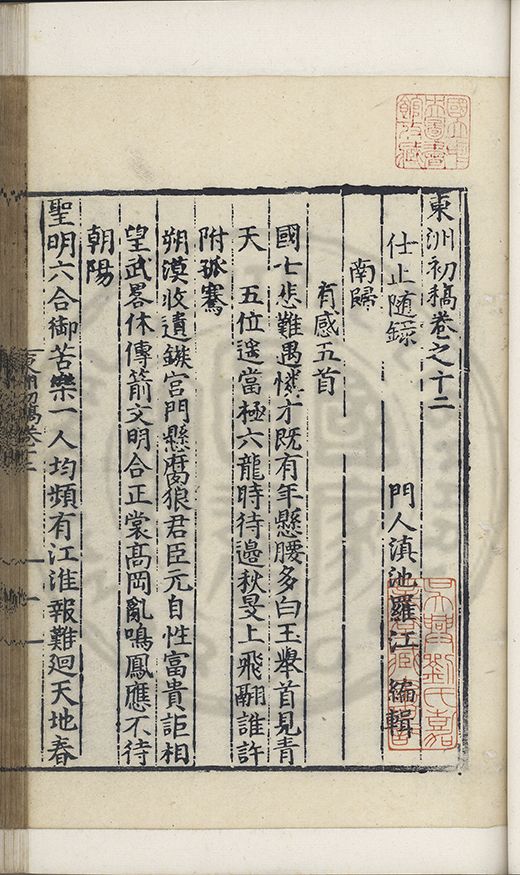 東洲初稿卷之十二
仕止随錄
門人滇池羅江編輯
南歸
有感五首
國士悲難遇憐才既有年懸腰多白玉舉首見青
天　五位遥當極六龍時待邉秋旻上飛翮誰許
附孤騫
朔漠收遺鏃宫門懸腐狼君臣元自性富貴詎相
望武畧休傳箭文明合正裳髙岡亂鳴鳳應不待
朝陽
聖明六合御苦樂一人均頻有江淮報難迴天地春
國立中
央圖書
館收藏
吳興劉氏嘉
業堂藏書